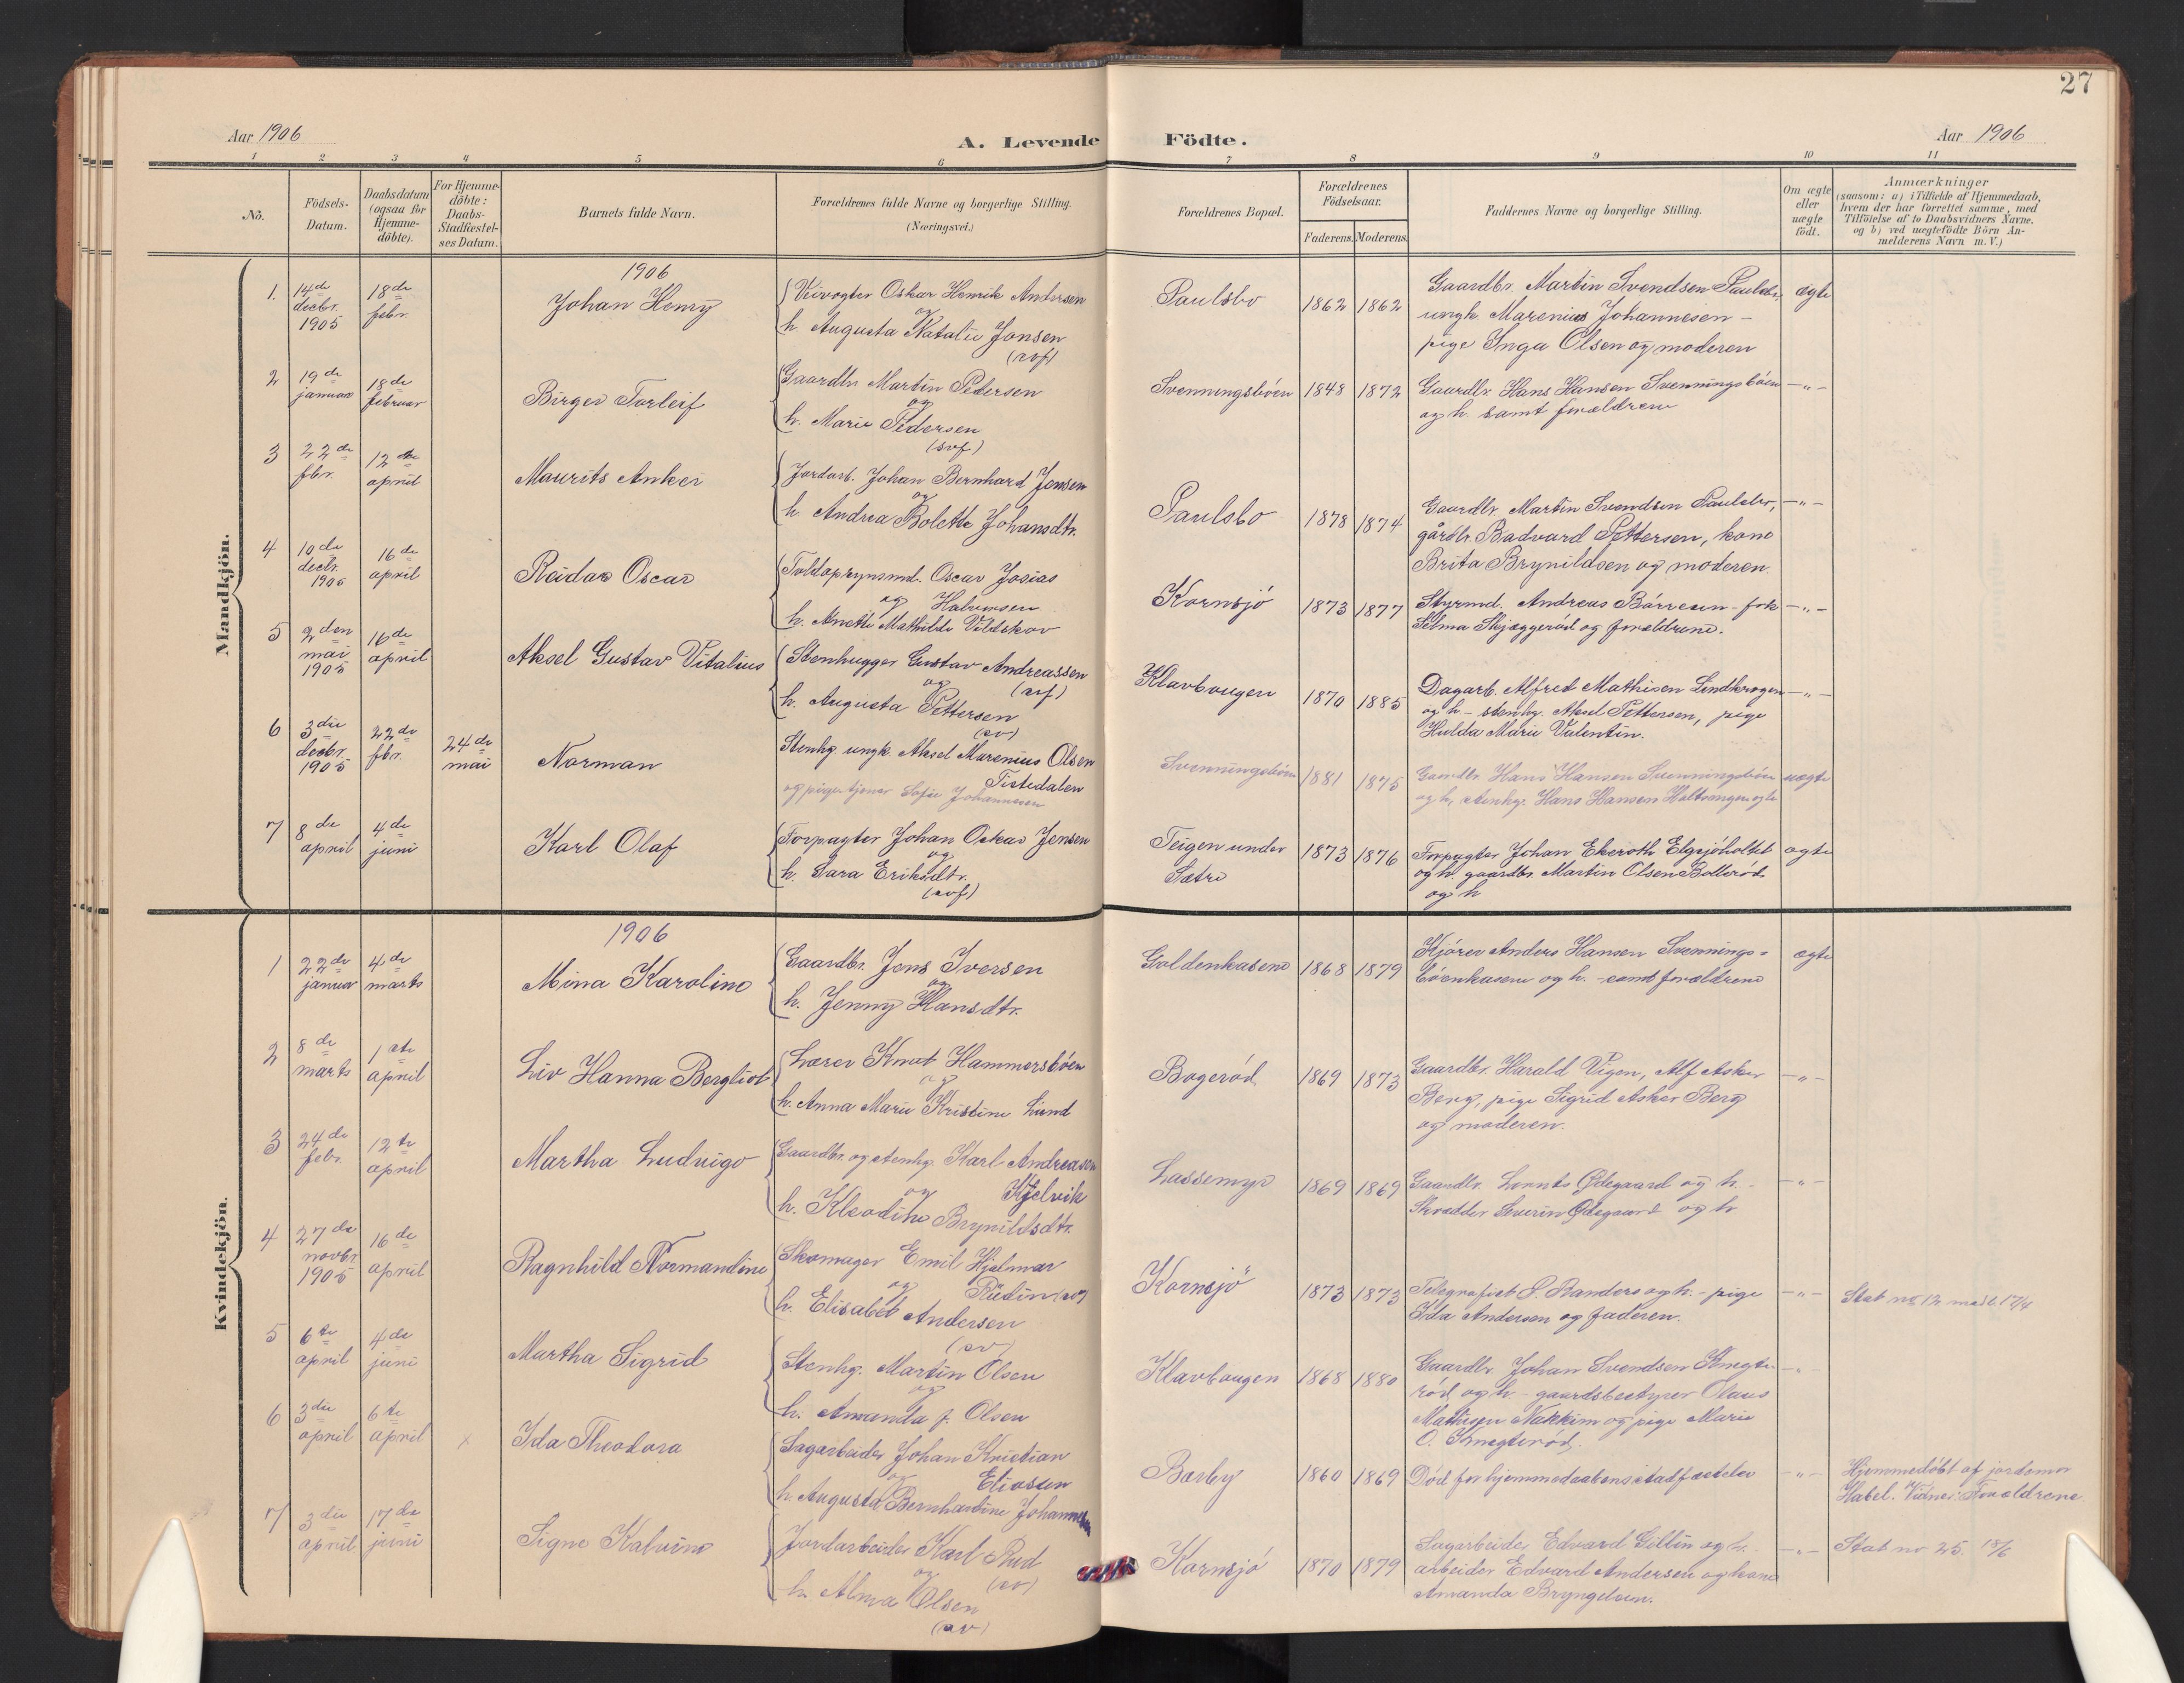 27
Aar 1906
A. Levende Födte.
Aar 1906
1 2 3 4 5 6 7 8 9 10 11
No.
Födsels-
Datum.
Daabsdatum
(ogsaa for
Hjemme-
döbte).
For Hjemme-
döbte:
Daabs-
Stadfæstel-
ses Datum.
Barnets fulde Navn.
Forældrenes fulde Navne og borgerlige Stilling.
(Næringsvei.)
Forældrenes Bopæl.
Forældrenes
Födselsaar.
Faderens. Moderens.
Faddernes Navne og borgerlige Stilling.
Om ægte
eller
uægte
födt.
Anmærkninger
(saasom: a) i Tilfælde af Hjemmedaab,
hvem der har forrettet samme, med
Tilföielse af to Daabsvidners Navne,
og b) ved uægtefödte Börn An-
melderens Navn m. V.)
Mandkjön.
1906
1. 14de
decbr.
1905
18de
febr.
Johan Henry
Veivogter Oskar Henrik Andersen
og
h. Augusta Natalie Jonsen
Paulsbo 1862 1862
Gaardbr. Martin Svendsen Paulsbo,
ungk. Marenius Johannesen -
pige Inga Olsen og moderen
ægte
2 19de
januar
18de
februar
Birger Torleif
Gaardbr Martin Pedersen
og
h. Marie Pedersen
Svenningsbøen 1848 1872
Gaardbr. Hans Hansen Svenningsbøen
og h. samt forældrene
-"-
3 22de
fbr.
12te
april
Maurits Anker
Jordarb. Johan Bernhard Jensen
og
h. Andrea Bolette Johansdtr.
Paulsbo 1878 1874
Gaardbr. Martin Svendsen Paulsbo,
gårdbr. Badvard Pettersen, kone
Brita Brynildsen og moderen.
-"-
4 10de
decbr.
1905
16de
april
Reidar Oscar
Toldopsynsmd. Oscar Josias
og Halvorsen
h. Anette Mathilde Vildskov
Kornsjø 1873 1877
Styrmd. Andreas Børresen - frk
Selma Skjæggerød og forældrene.
-"-
5 2den
mai
1905
16de
april
Aksel Gustav Vitalius
Stenhugger Gustav Andreassen
og
h. Augusta Pettersen
Klavhaugen 1870 1885
Dagarb. Alfred Mathisen Lindhaugen
og h - stenhg. Aksel Pettersen, pige
Hulda Marie Valentin.
-"-
6 3die
decbr.
1905
22de
fbr.
24de
mai
Norman
Stenhg. ungk. Aksel Marenius Olsen
Tistedalen
og pige tjener Sofie Johannesen
Svenningsbøen 1881 1875
Gaardbr. Hans Hansen Svenningsbøen
og h, stenhg. Hans Hansen
uægte
7 8de
april
4de
juni
Karl Olaf
Forpagter Johan Oskar Jensen
og
h. Sara Eriksdtr.
Teigen under
Sætre
1873 1876
Forpagter Johan Ekeroth Elgsjøholtet
og h. gaardbr. Martin Olsen Bollerød
og h
ægte
Kvindekjön.
1906
1 22de
januar
4de
marts
Mina Karoline
Gaardbr. Jens Iversen
og
h. Jenny Hansdtr.
Goldenkasene 1868 1879
Kjører Anders Hansen Svennings-
bøenkasene og h. - samt forældrene
ægte
2 8de
marts
1ste
april
Liv Hanna Bergliot
Lærer Knut Hammersbøen
og
h. Anna Marie Kristine Lund
Bogerød 1869 1873
Gaardbr. Harald Vigen, Alf Asker
Berg, pige Sigrid Asker Berg
og moderen.
-"-
3 24de
febr.
12te
april
Martha Ludviga
Gaardbr. og stenhg. Karl Andreasen
og Kjelvik
h. Kleodine Brynildsdtr.
Lassemyr 1869 1869
Gaardbr. Lornts Ødegaard og h. -
Skrædder Severin Ødegaard og h
-"-
4 27de
novbr.
1905
16de
april
Ragnhild Normandine
Skomager Emil Hjalmar
og
h. Elisabet Andersen
Kornsjö 1873 1873
Telegrafist S. Randers og h. - pige
Ida Andersen og faderen.
-"-
Stat no 12 17/4
5 6te
april
4de
juni
Martha Sigrid
Stenhg. Martin Olsen
og
h. Amanda f. Olsen
Klavhaugen 1868 1880
Gaardbr. Johan Svendsen Knegte-
rød og h - gaardsbestyrer Olaus
Mathisen Nakkim og pige Marie
O. Knegterød.
-"-
6 3die
april
6te
april
x
Ida Theodora
Sagarbeider Johan Kristian
og Eliassen
h. Augusta Bernhardine Johannesen
Barby 1860 1869
Død før hjemmedaabens stadfæstelse
-"-
Hjemmedøbt af jordemor
Habel. Vidner: Forældrene
7 3die
april
17de
juni
Signe Kalvine
Jordarbeider Karl Rud
og
h. Alma Olsen
Kornsjø 1870 1879
Sagarbeider Edvard Gillin og h.
arbeider Edvard Andersen og kone
Amanda Bryngelsen.
-"-
Stat no 25. 18/6